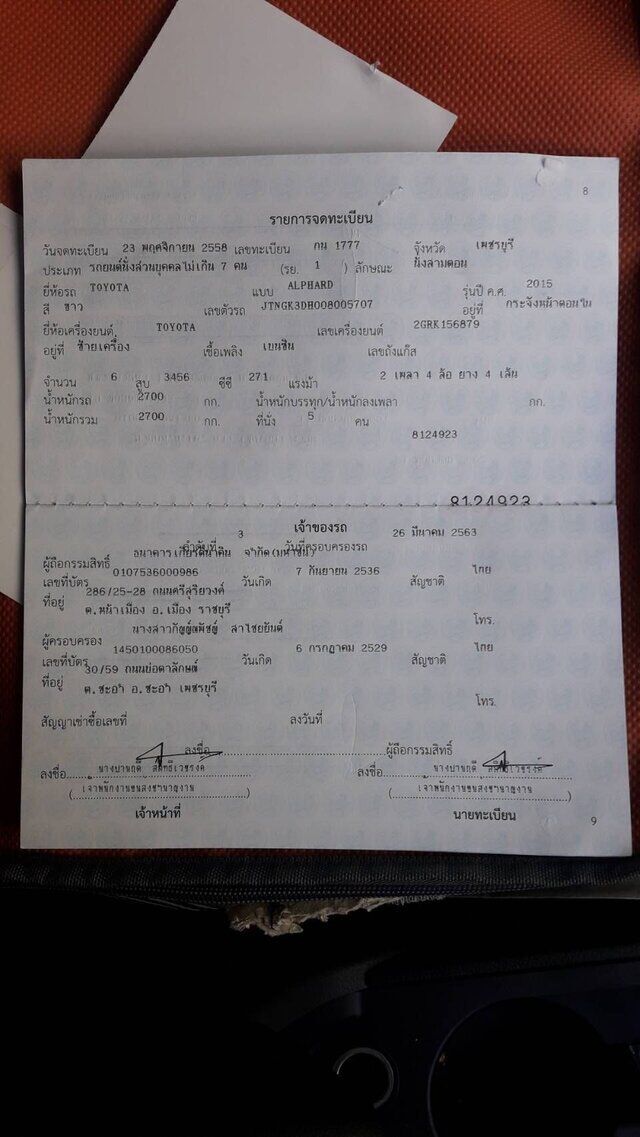 8
รายการจดทะเบียน
วันจดทะเบียน 23 พฤศจิกายน 2558 เลขทะเบียน กน 1777 จังหวัด เพชรบุรี
ประเภท รถยนต์นั่งส่วนบุคคลไม่เกิน 7 คน (รย. 1 ) ลักษณะ นั่งสามตอน
ยี่ห้อรถ TOYOTA แบบ ALPHARD รุ่นปี ค.ศ. 2015
สี ขาว เลขตัวรถ JTNGK3DH008005707 อยู่ที่ กระจังหน้าตอนใน
ยี่ห้อเครื่องยนต์ TOYOTA เลขเครื่องยนต์ 2GRK156879
อยู่ที่ ซ้ายเครื่อง เชื้อเพลิง เบนซิน เลขถังแก๊ส
จำนวน 6 สูบ 3456 ซีซี 271 แรงม้า 2 เพลา 4 ล้อ ยาง 4 เส้น
น้ำหนักรถ 2700 กก. น้ำหนักบรรทุก/น้ำหนักลงเพลา กก.
น้ำหนักรวม 2700 กก. ที่นั่ง 5 คน
8124923
8124923
เจ้าของรถ
ลำดับที่ 3 วันที่ครอบครองรถ 26 มีนาคม 2563
ผู้ถือกรรมสิทธิ์ ธนาคารเกียรตินาคิน จำกัด(มหาชน)
เลขที่บัตร 0107536000986 วันเกิด 7 กันยายน 2536 สัญชาติ ไทย
ที่อยู่ 286/25-28 ถนนศรีสุริยวงศ์
ต.หน้าเมือง อ.เมือง ราชบุรี โทร.
ผู้ครอบครอง นางสาว
เลขที่บัตร 1450100086050 วันเกิด 6 กรกฎาคม 2529 สัญชาติ ไทย
ที่อยู่ 30/59 ถนนบ่อตาลักษณ์
ต.ชะอำ อ.ชะอำ เพชรบุรี โทร.
สัญญาเช่าซื้อเลขที่ ลงวันที่
ลงชื่อ ผู้ถือกรรมสิทธิ์
ลงชื่อ ลงชื่อ
(เจ้าพนักงานขนส่งชำนาญงาน) (เจ้าพนักงานขนส่งชำนาญงาน)
เจ้าหน้าที่ นายทะเบียน
9